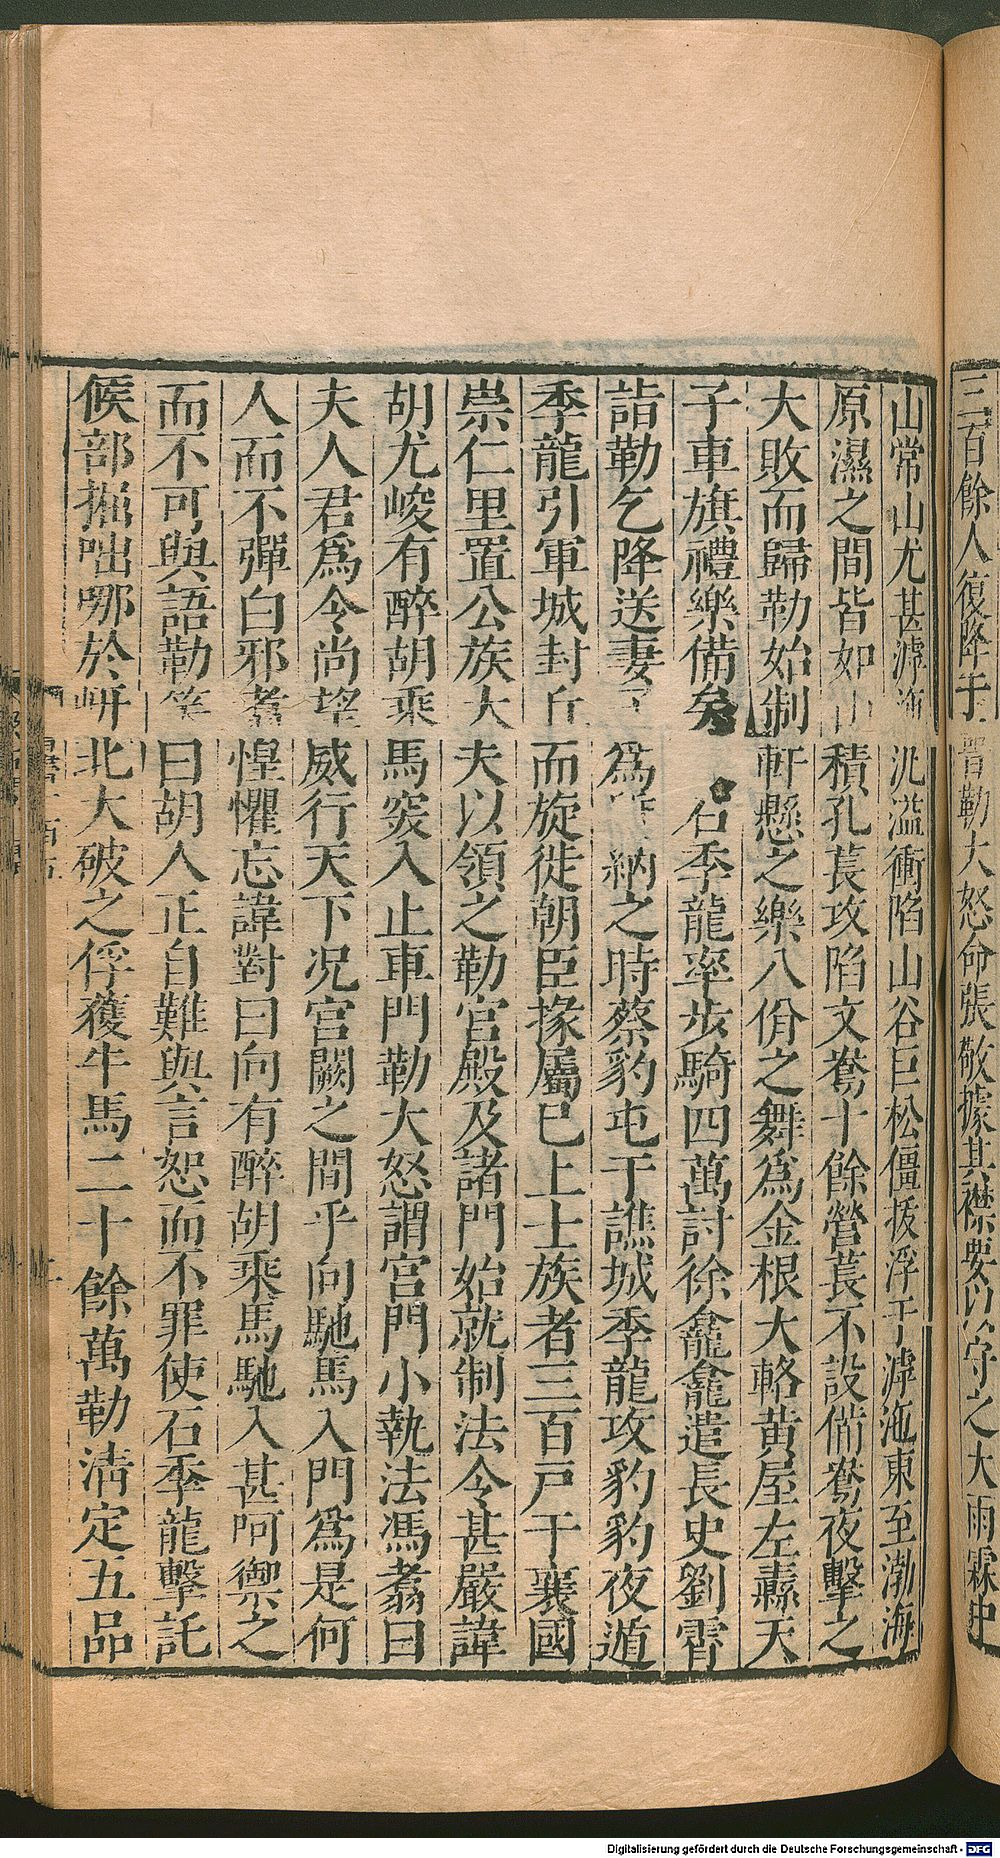 三百餘人復降于晉勒大怒命張敬據其襟要以守之大雨霖中
山常山尤甚滹沲汎溢衝陷山谷巨松僵拔浮于滹沲東至渤海
原濕之間皆如山積孔萇攻陷文鴦十餘營萇不設備鴦夜擊之
大敗而歸勒始制軒懸之樂八佾之舞爲金根大輅黃屋左纛天
子車旗禮樂備矣 石季龍率步騎四萬討徐龕龕遣長史劉霄
詣勒乞降送妻子爲質納之時蔡豹屯于譙城季龍攻豹豹夜遁
季龍引軍城封丘而旋徙朝臣掾屬已上士族者三百戶于襄國
崇仁里置公族大夫以領之勒官殿及諸門始就制法令甚嚴諱
胡尤峻有醉胡乘馬突入止車門勒大怒謂宮門小執法馮翥曰
夫人君爲令尚望威行天下况宮闕之間乎向馳馬入門爲是何
人而不彈白邪翥惶懼忘諱對曰向有醉胡乘馬馳入甚呵禦之
而不可與語勒笑曰胡人正自難與言恕而不罪使石季龍擊託
候部掘咄哪於岍北大破之俘獲牛馬二十餘萬勒清定五品
Digitalisierung gefördert durch die Deutsche Forschungsgemeinschaft - DFG